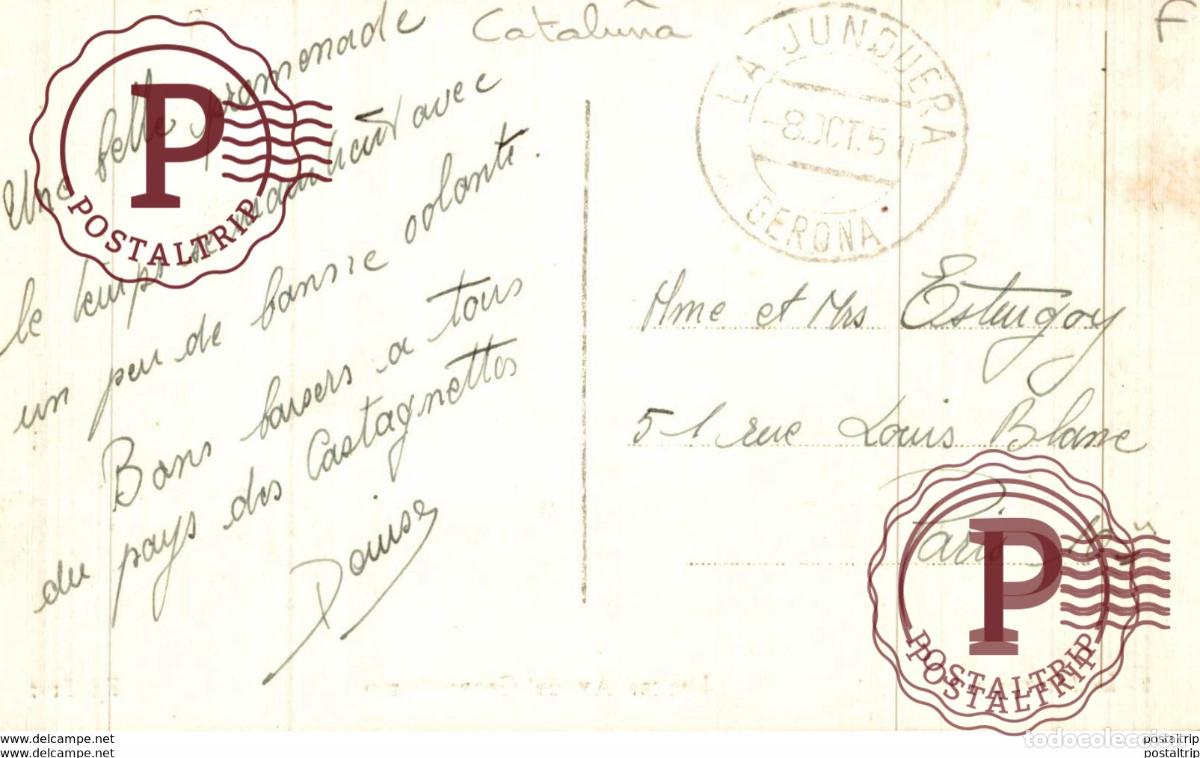 Cataluña
F
Une belle promenade
le temps maintenant avec
un peu de bonne volonté.
Bons baisers a tous
du pays des Castagnettes
Denise
LA JUNQUERA
8 OCT. 5
GERONA
Mme et Mrs Esturgoy
51 rue Louis Blanc
Paris 10
POSTALTRIP
POSTALTRIP
POSTALTRIP
todocoleccion
www.delcampe.net
www.delcampe.net
postaltrip
postaltrip